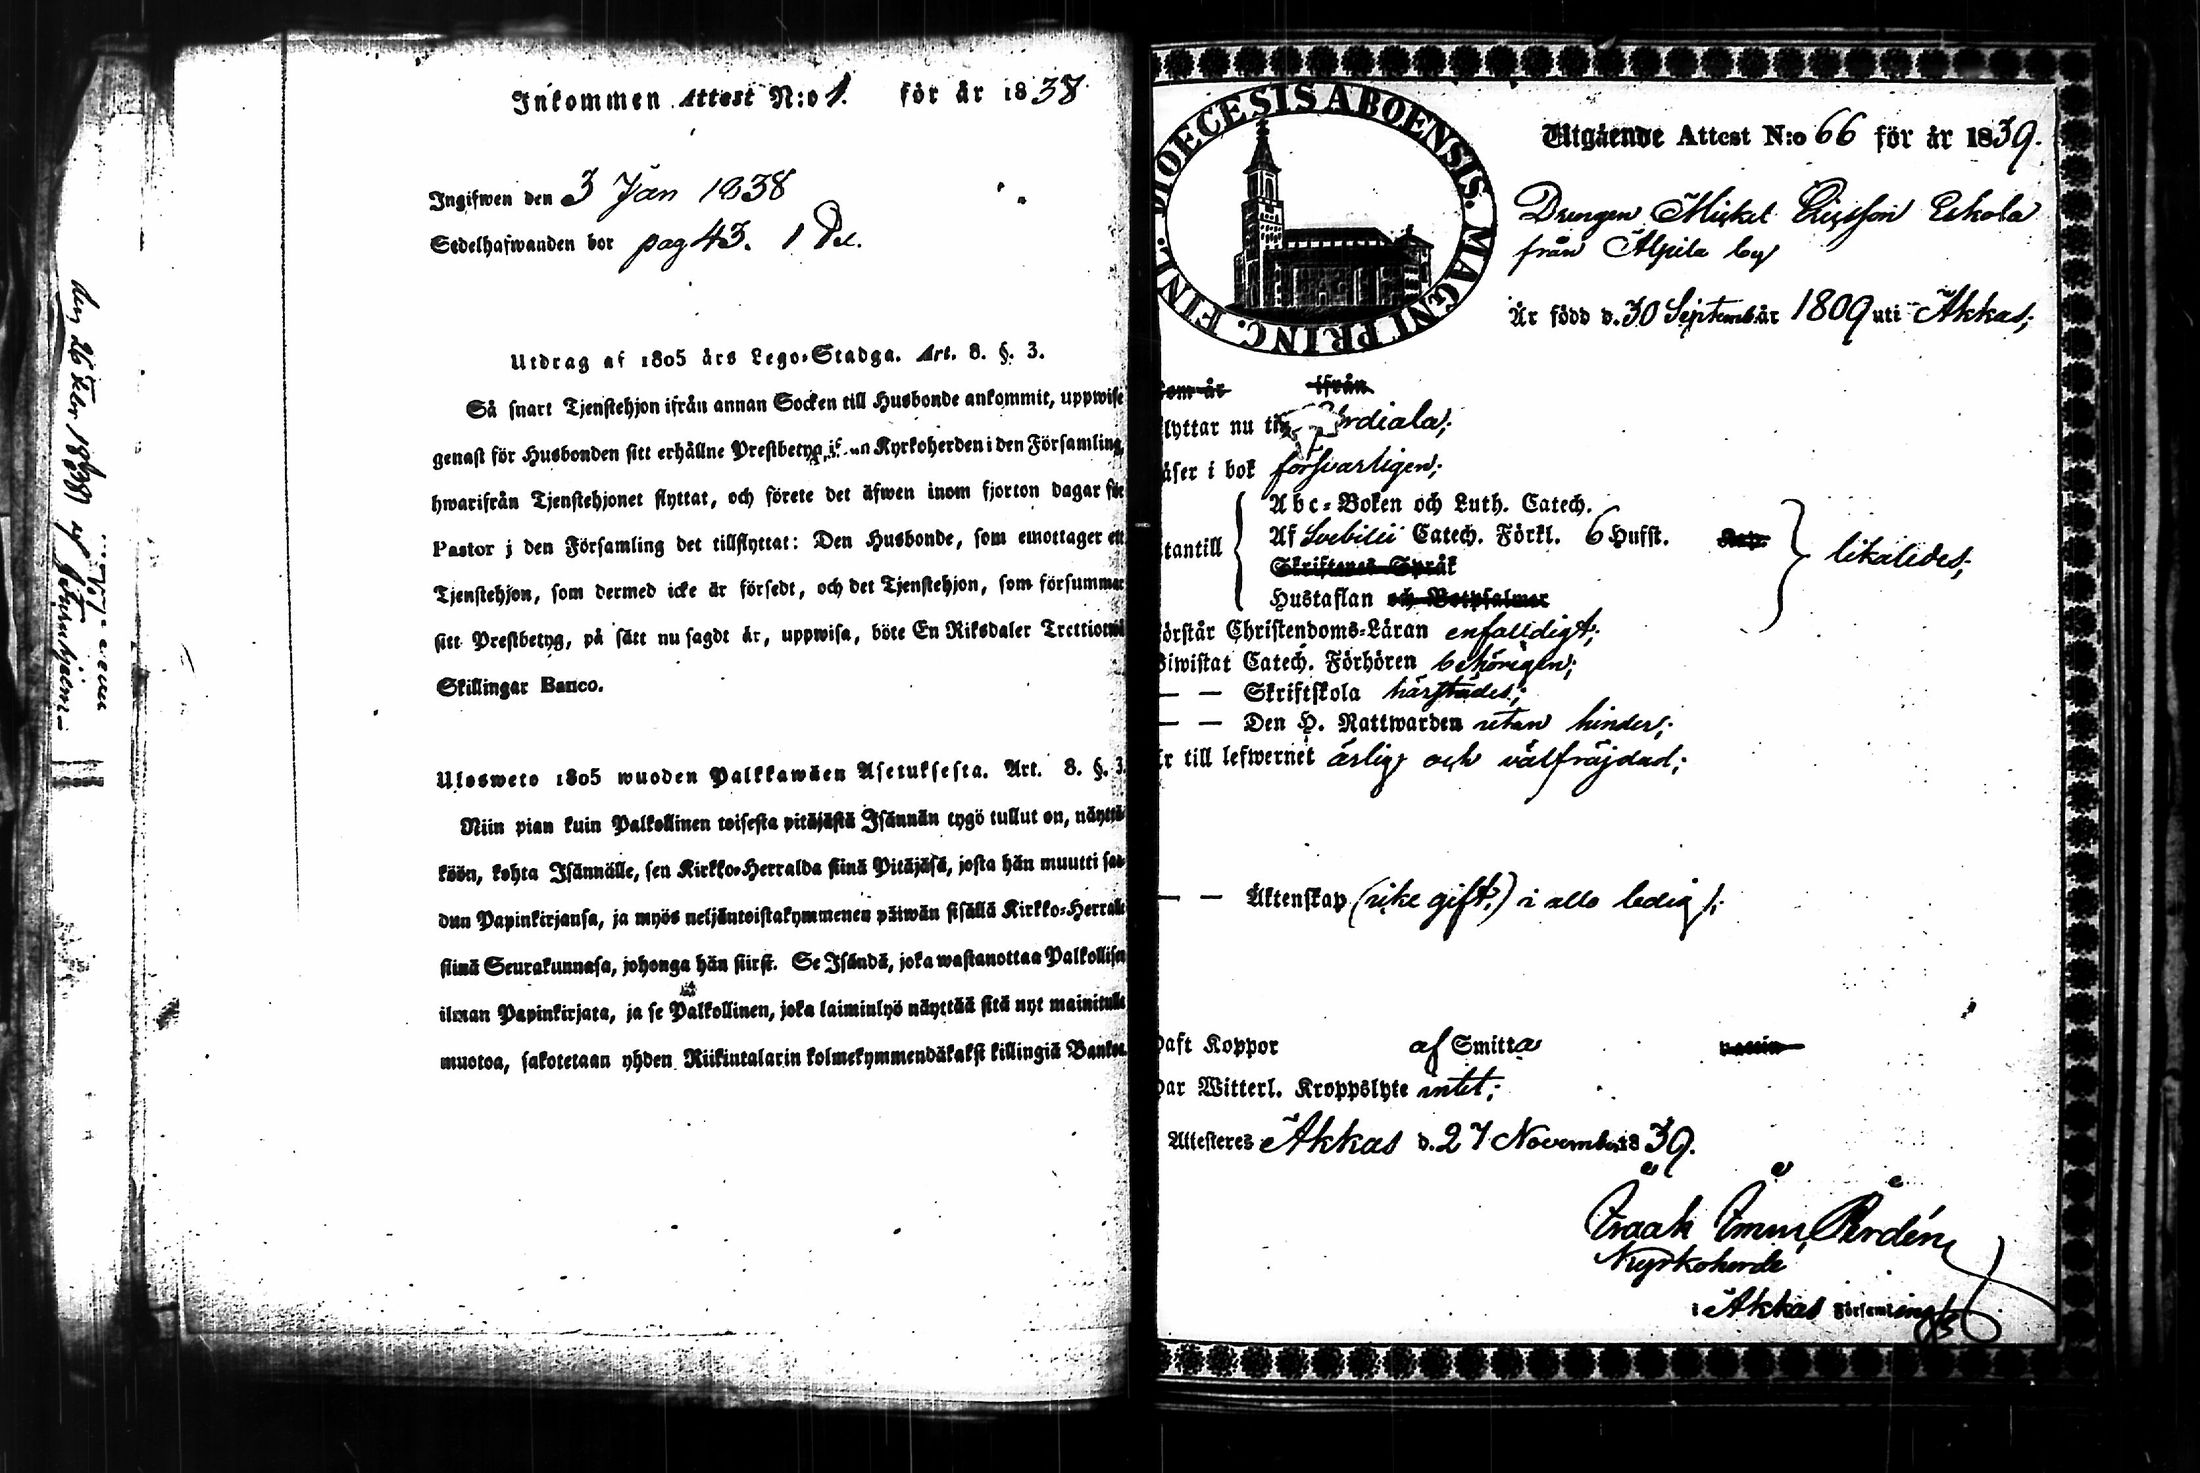 Inkommen Attest N:o 1. för år 1838
Ingifwen den 3 Jan 1838
Sedelhafwanden bor pag 43. 1 Del.
Utdrag af 1805 års Lego-Stadga. Art. 8. §. 3.
Så snart Tjenstehjon ifrån annan Socken till Husbonde ankommit, uppwise
genast för Husbonden sitt erhållne Prestbetyg Kyrkoherden i den Församling,
hwarifrån Tjenstehjonet flyttat, och förete det äfwen inom fjorton dagar för
Pastor j den Församling det tillflyttat: Den Husbonde, som emottager ett
Tjenstehjon, som dermed icke är försedt, och det Tjenstehjon, som försummar
sitt Prestbetyg, på sätt nu sagdt är, uppwisa, böte En Riksdaler Trettiotwå
Skillingar Banco.
Ulosweto 1805 wuoden Palkkawäen Asetuksesta. Art. 8. §. 3.
Niin pian kuin Palkollinen toisesta pitäjästä Isännän tygö tullut on, näyttä-
köön, kohta Isännälle, sen Kirkko-Herralda siinä Pitäjäsä, josta hän muutti saa-
dun Papinkirjansa, ja myös neljäntoistakymmenen päiwän sisällä Kirkko-Herralle
siinä Seurakunnasa, johonga hän siirst. Se Isändä, joka wastanottaa Palkollisen
ilman Papinkirjata, ja se Palkollinen, joka laiminlyö näyttää sitä nyt mainitulla
muotoa, sakotetaan yhden Riikintalarin kolmekymmendäkaksi killingiä Bankos.
den 26
DIOECESIS ABOENSIS. MAGNI PRINC. FINL.
Utgående Attest N:o 66 för år 1839.
Drengen Mickel Ericsson Eskola
från Alpila by
Är född d. 30 Septemb. år 1809 uti Akkas;
som är ifrån
flyttar nu till rdiala;
läser i bok försvarligen;
utantill
Abc-Boken och Luth. Catech.
Af Svebilii Catech. Förkl. 6 Hufst.
Skriftenes Språk
Hustaflan och Botpsalmer
likaledes;
förstår Christendoms-Läran enfalldigt;
Biwistat Catech. Förhören behörigen;
— — Skriftskola härstädes;
— — Den H. Nattwarden utan hinder;
Är till lefwernet ärlig och välfräjdad;
— — Äktenskap (icke gift;) i allo ledig;
Haft Koppor af Smitta
Har Witterl. Kroppslyte intet;
Attesteres Akkas d. 27 November 1839.
Isaak Imm. Pordén
Kyrkoherde
i Akkas Församling